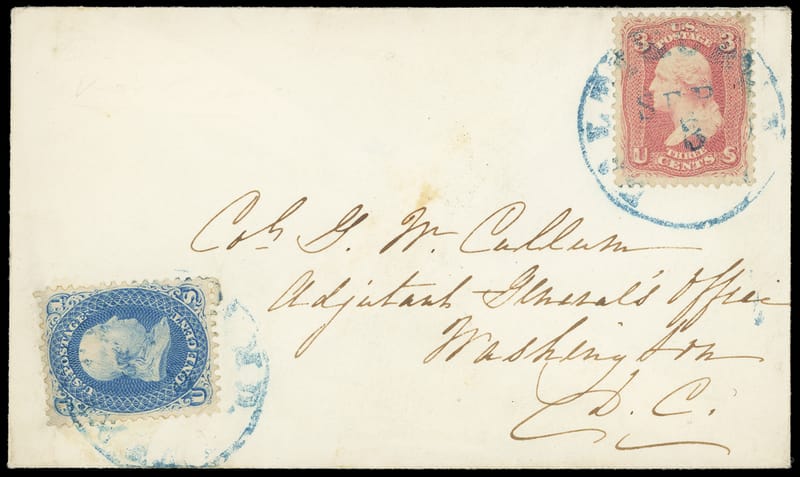 3 U.S. 3
POSTAGE
SEP
5
U THREE S
CENTS
Col. G. W. Cullum
Adjutant General's Office
Washington
D. C.
U.S. POSTAGE
ONE CENT
U S